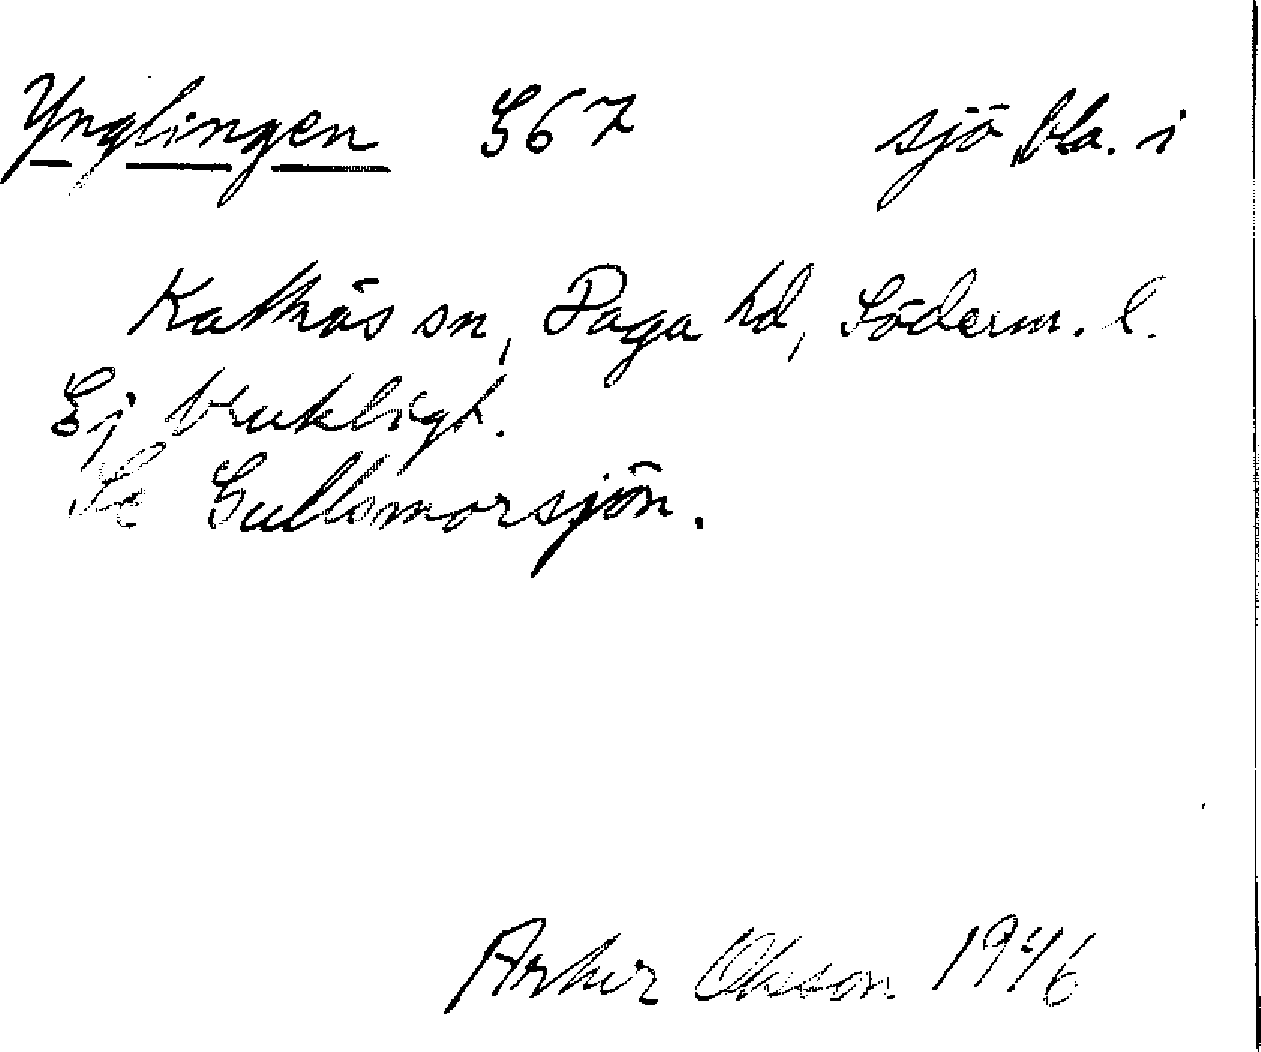 Ynglingen G67 sjö bl.a. i
Kattnäs sn, Daga hd, Söderm. l.
Ej brukligt.
Se Gullsmorsjön.
Olsson 1946